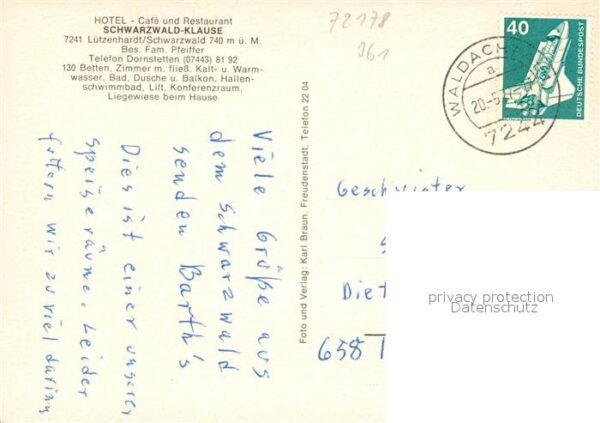 HOTEL - Café und Restaurant
SCHWARZWALD-KLAUSE
7241 Lützenhardt/Schwarzwald 740 m ü. M.
Bes. Fam. Pfeiffer
Telefon Dornstetten (07443) 81 92
130 Betten, Zimmer m. fließ. Kalt- u. Warm-
wasser, Bad, Dusche u. Balkon, Hallen-
schwimmbad, Lift, Konferenzraum,
Liegewiese beim Hause
72178
961
40
DEUTSCHE BUNDESPOST
WALDACHT
a
20-6
7244
Foto und Verlag: Karl Braun, Freudenstadt, Telefon 22 04
Viele Grüße aus
dem Schwarzwald
senden Barth's
Dies ist einer unserer
Speiseräume. Leider
futtern wir zu viel darinn
Geschwister
Diet
658
privacy protection
Datenschutz